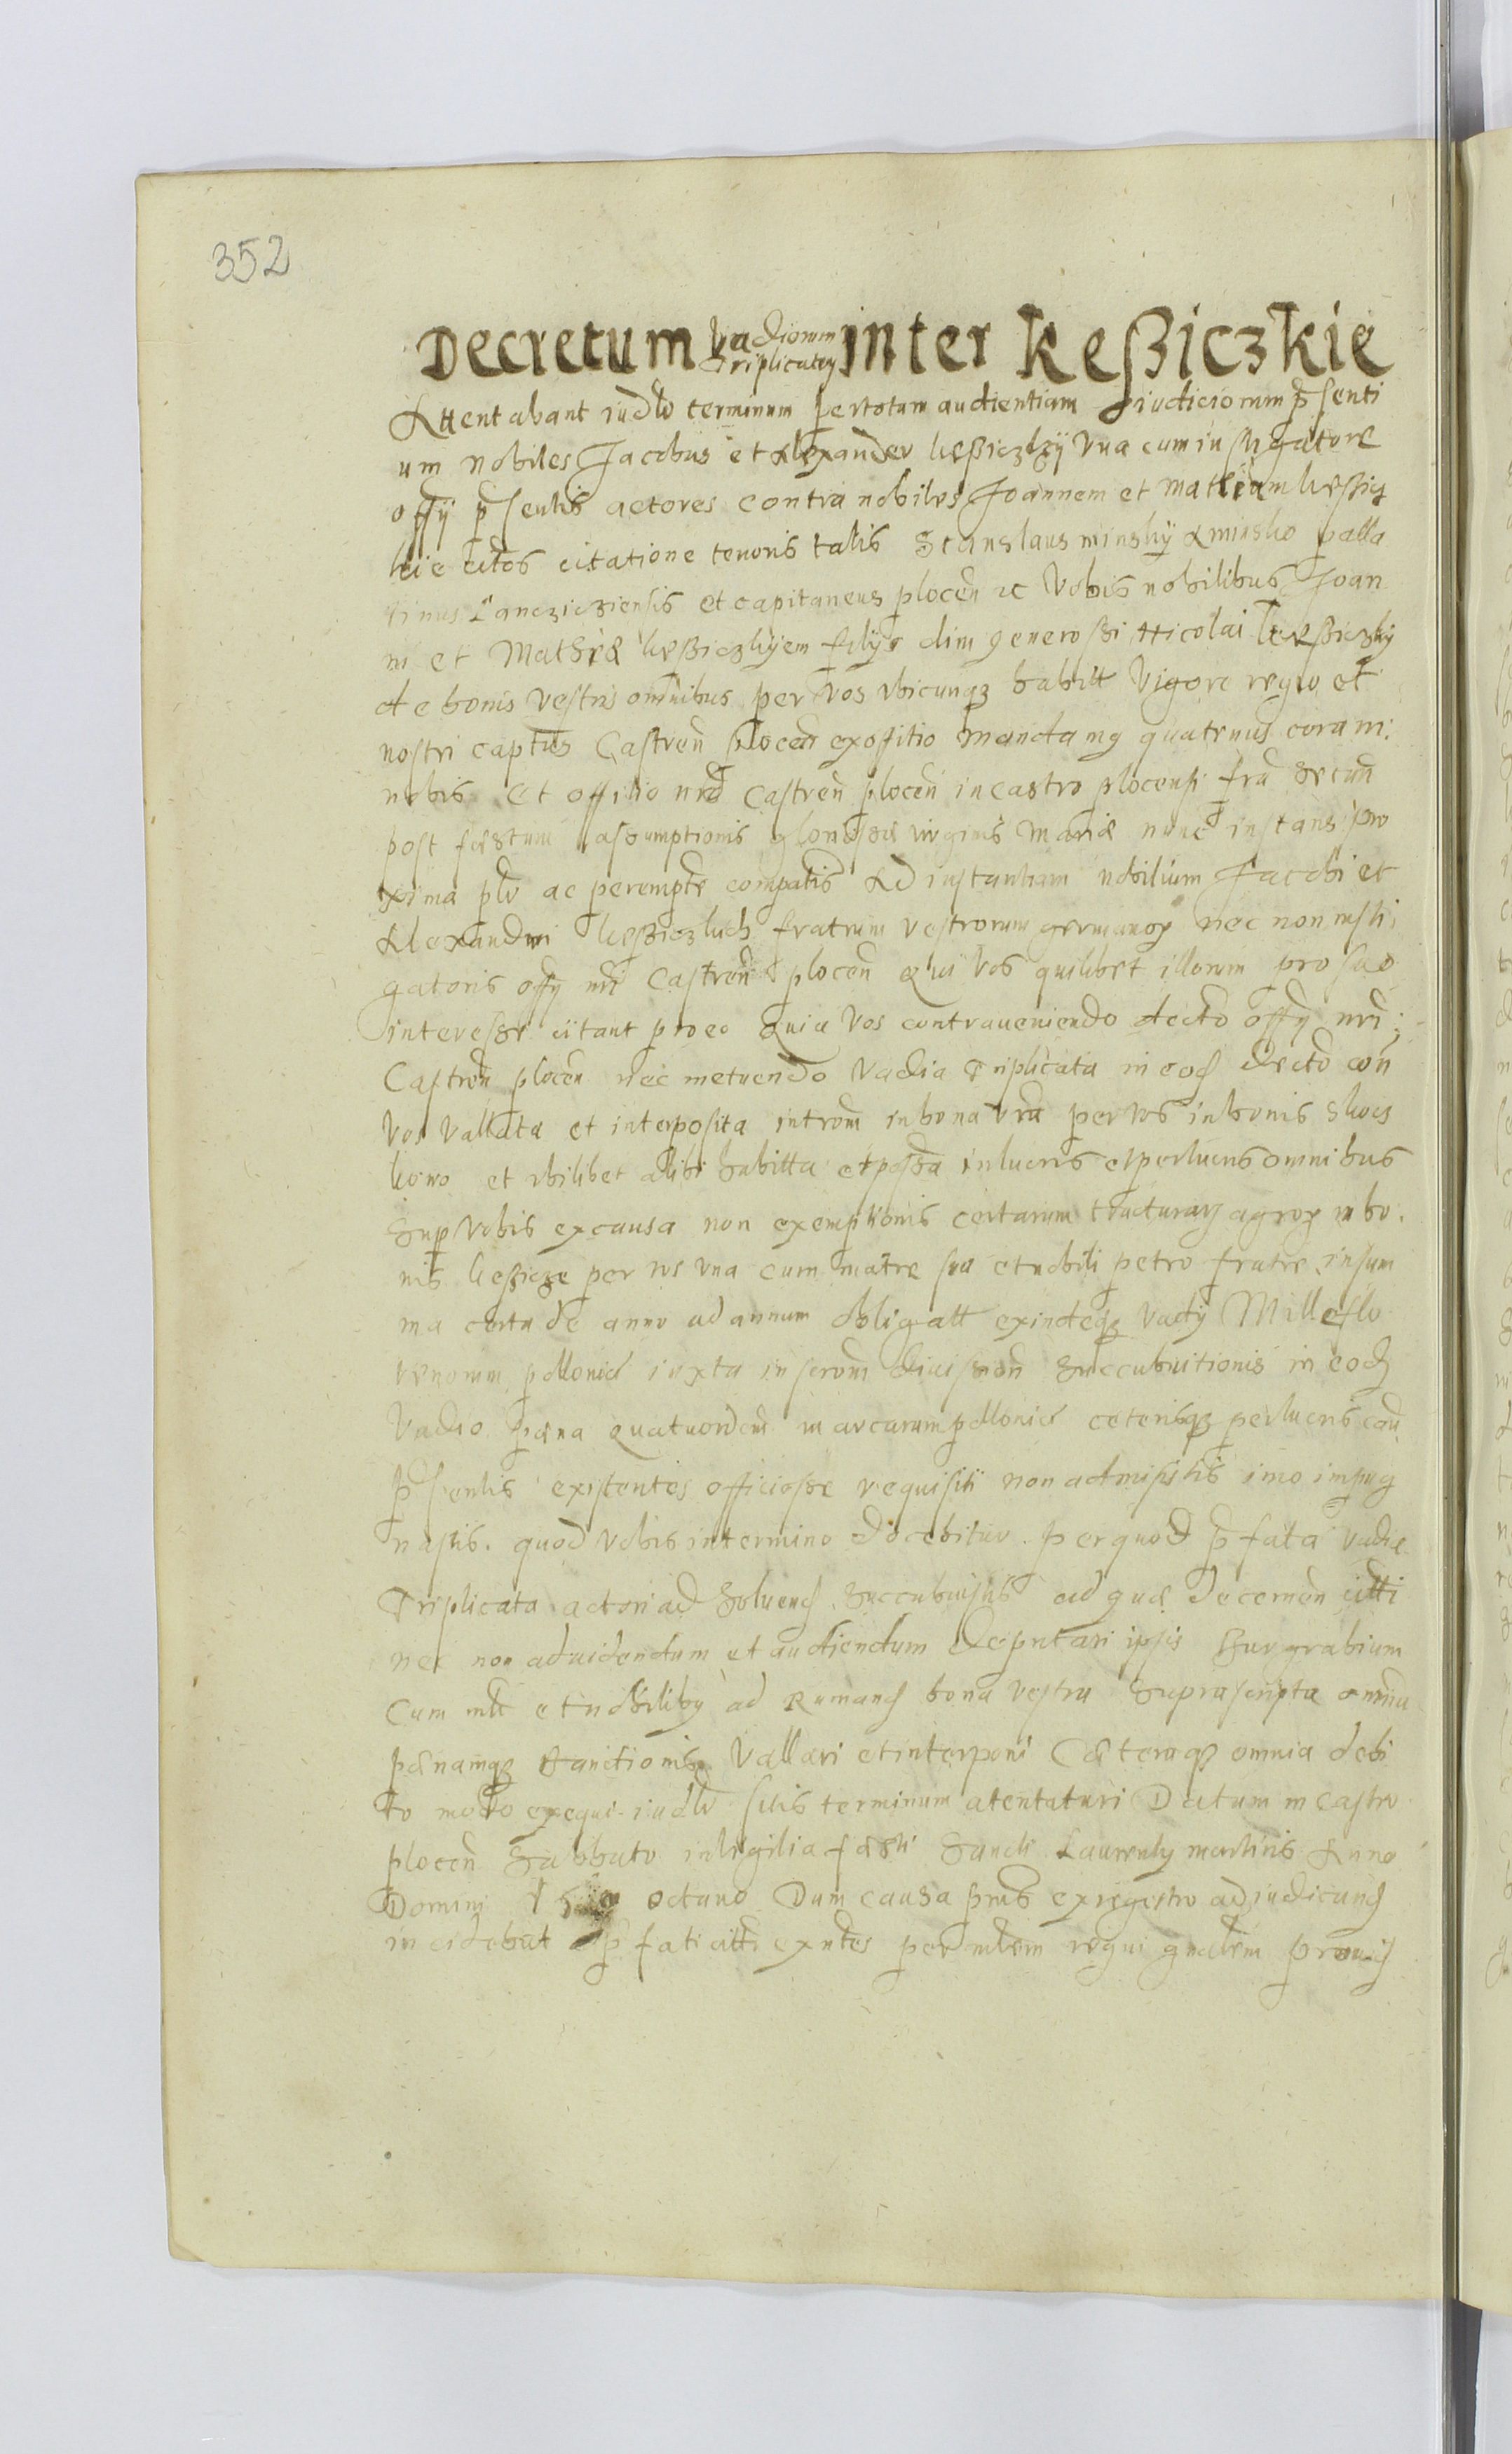 352
Decretum vadiorum triplicatorum inter Keßiczkie
Attentabant iudlr terminum per totam audientiam iudiciorum p̄senti
um nobiles Jacobus et Alexander keßiczkÿ Vna cum instigatore
offÿ p̄sentis actores contra nobiles Joannem et Mathiam keßicz
kie citos citatione tenoris talis Stanslaus minskÿ A minsko palla
tinus Lancziciensis et capitaneus plocen̄ ꝛc Vobis nobilibus Joan
ni et Mathiæ keßiczkyem filÿs olim generoßi Nicolai keßiczkÿ
de bonis vestris omnibus per vos vbicunqȝ habitt Vigore regio et
nostri captus Castren̄ plocen̄ ex offitio Mandamꝯ quatenus coram
nobis et offitio nr̄o Castren̄ plocen̄ in castro plocensi fra secun
post fæstum assumptionis gloriosæ virginis Mariæ nunc instans pro
xima plr ac perempte compatis Ad instantiam nobilium Jacobi et
Alexandri keßiczkich fratrum vestrorum germanoꝝ nec non insti
gatoris offÿ nr̄i Castren̄ plocen̄ Qui Vos quilibet illorum pro suo
interesse citant pro eo Quia Vos contraueniendo decto offÿ nr̄i
Castren̄ plocen̄ nec metuendo Vadia Triplicata in eod decto con̄
Vos Vallata et interposita introm in bona vr̄a per vos in bonis
et vbilibet alibi habitta et possa in lucris et perlucris omnibus
Sup Vobis ex causa non exemptionis certarum agroꝝ in bo
nis keßicze per vos vna cum matre sua et nobili petro fratre in sum
ma certa de anno ad annum obligatt exindeqȝ Vadÿ Mille flo
renorum pollonic iuxta inscrom succubuitionis in eod
Vadio pæna quatuordecim marcarum pollonic ceterisqȝ perlucris
p̄sentis existentes officiose requisiti non admisistis imo impug
nastis. quod Vobis in termino docebitur. per quod p̄fata vadia
Triplicata actori ad Soluend Succubuistis ad quæ decernen citti
nec non ad uidendum et audiendum deputari ipsis burgrabium
Cum mlt et nobilibꝯ ad Rumand bona vestra Suprascripta omnia
pænamqȝ Vallari et interponi Cæteraqȝ omnia debi
to modo exequi iudlr sitis terminum atentaturi Datum in Castro
plocen̄ Sabbato in vigilia fæsti Sancti Laurentÿ martiris Anno
Domini octauo Dum causa pns ex regestro ad iudicand
incidebat p̄fati citti per mlem regni gnalem prouid